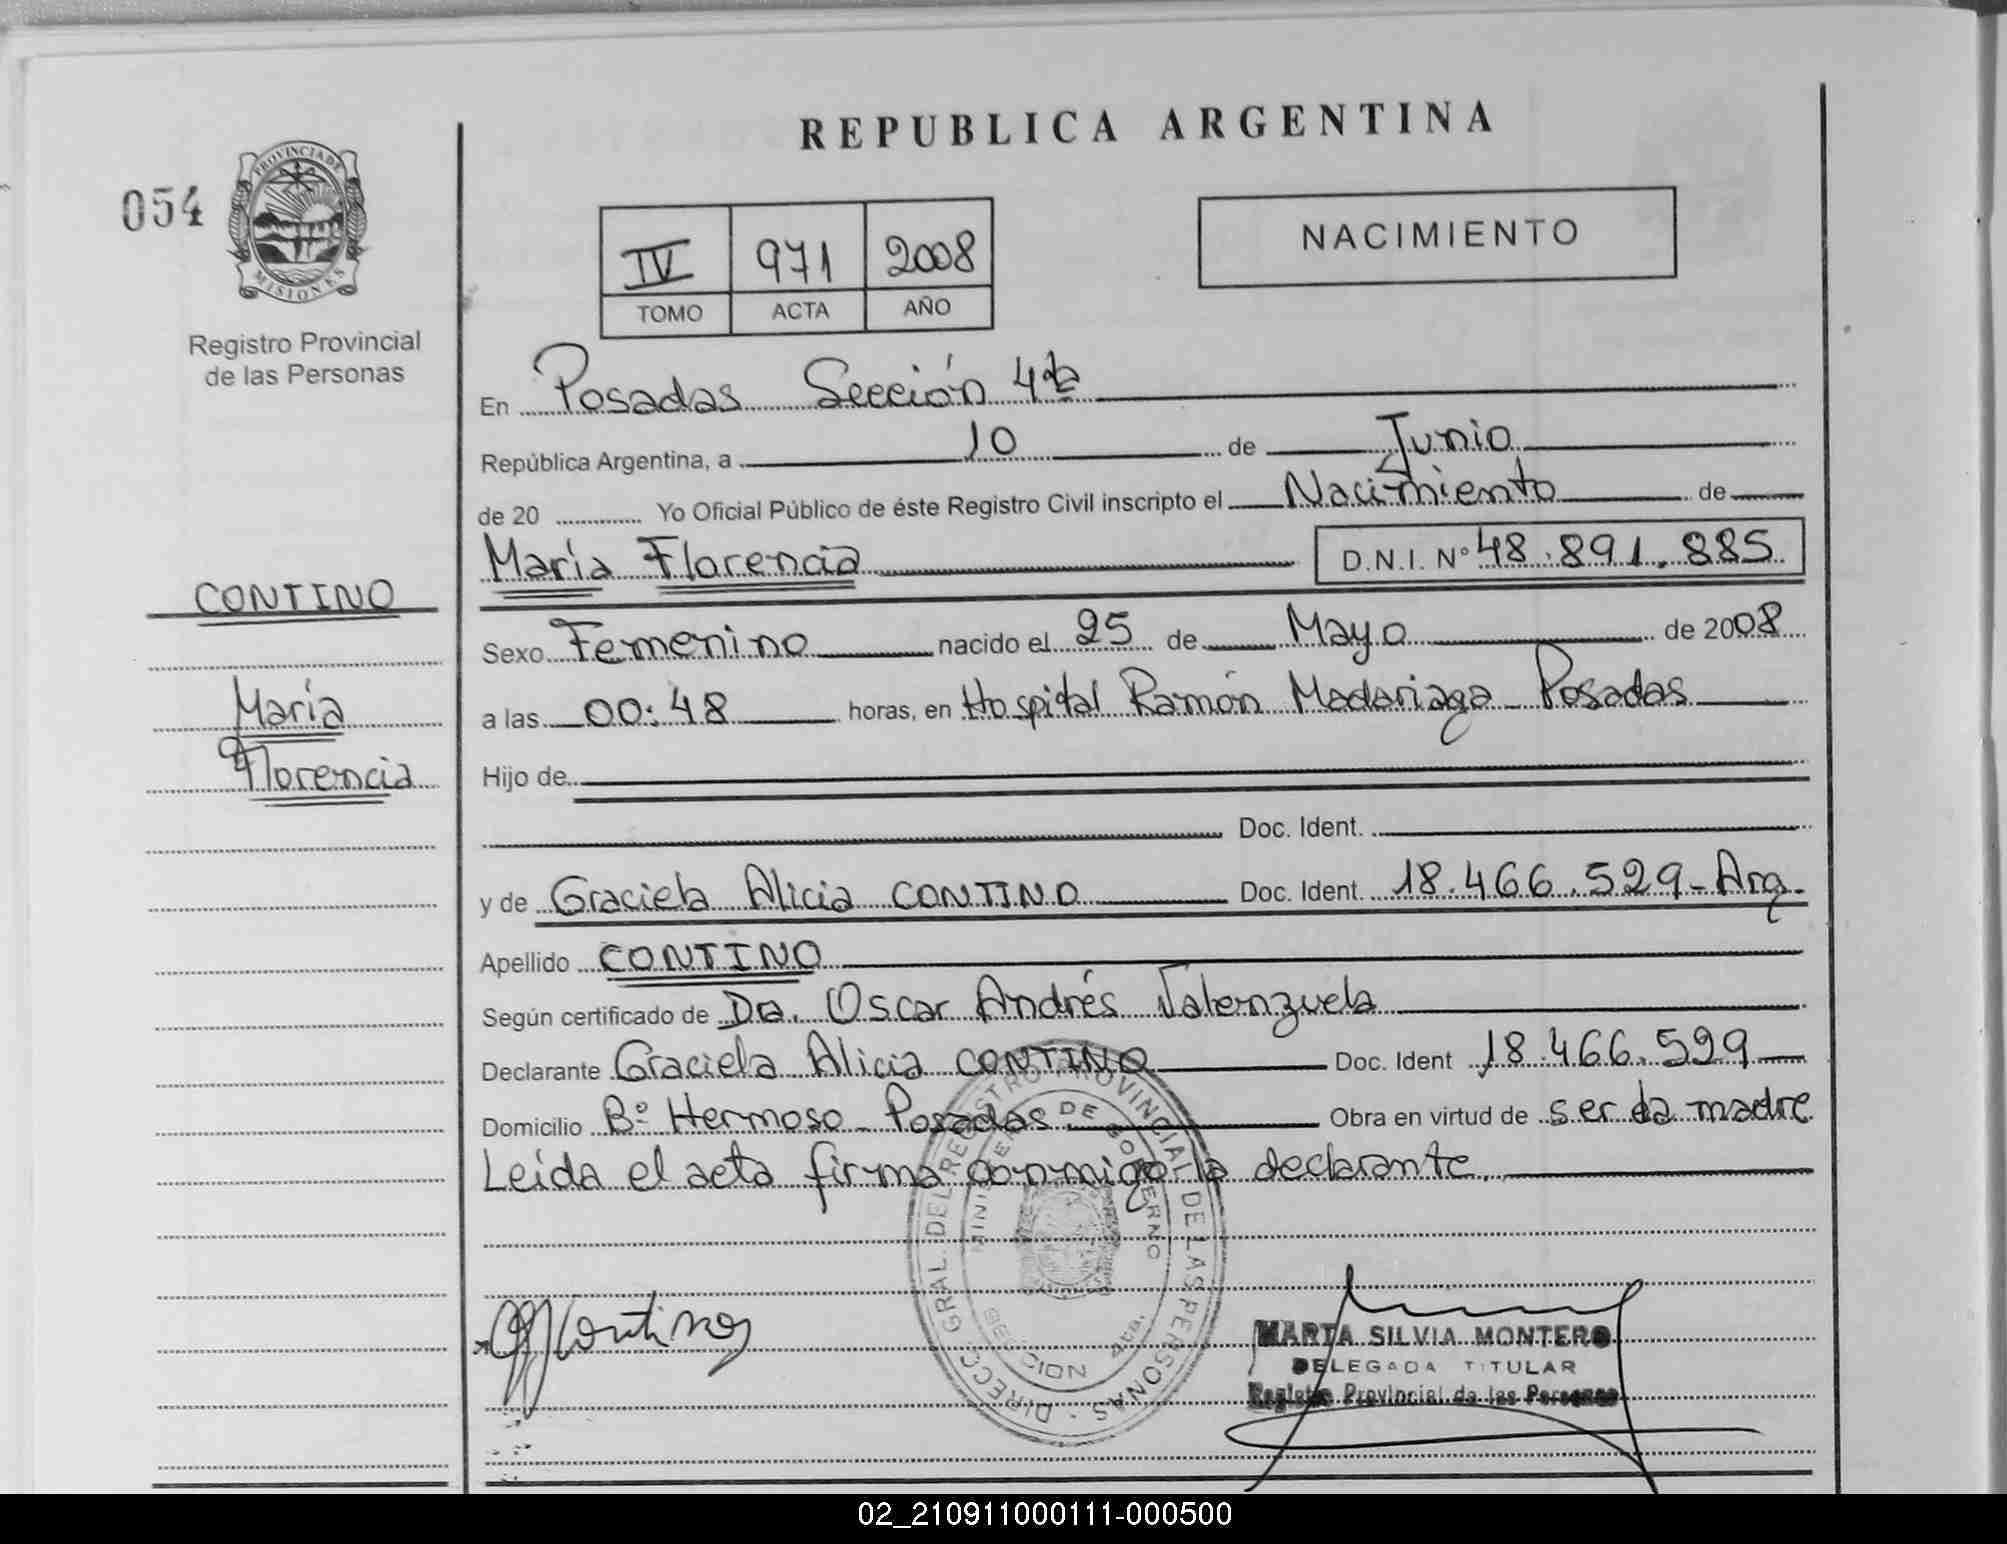 REPUBLICA ARGENTINA
054
PROVINCIA DE
MISIONES
Registro Provincial
de las Personas
IV 971 2008
TOMO ACTA AÑO
NACIMIENTO
En Posadas Sección 4ta
República Argentina, a 10 de Junio
de 20 Yo Oficial Público de éste Registro Civil inscripto el Nacimiento de
María Florencia D.N.I. Nº 48.891.885
CONTINO
María
Florencia
Sexo Femenino nacido el 25 de Mayo de 2008
a las 00:48 horas, en Hospital Ramón Madariaga - Posadas
Hijo de
Doc. Ident.
y de Graciela Alicia CONTINO Doc. Ident. 18.466.529 - Arg.
Apellido CONTINO
Según certificado de Dr. Oscar Andrés Valenzuela
Declarante Graciela Alicia CONTINO Doc. Ident 18.466.529
Domicilio Bº Hermoso - Posadas Obra en virtud de ser la madre
Leída el acta firma conmigo la declarante.
DIRECC. GRAL. DEL REGISTRO PROVINCIAL DE LAS PERSONAS
MINISTERIO DE GOBIERNO
SECCION 4ta.
Contino
MARTA SILVIA MONTERO
DELEGADA TITULAR
Registro Provincial de las Personas
02_210911000111-000500